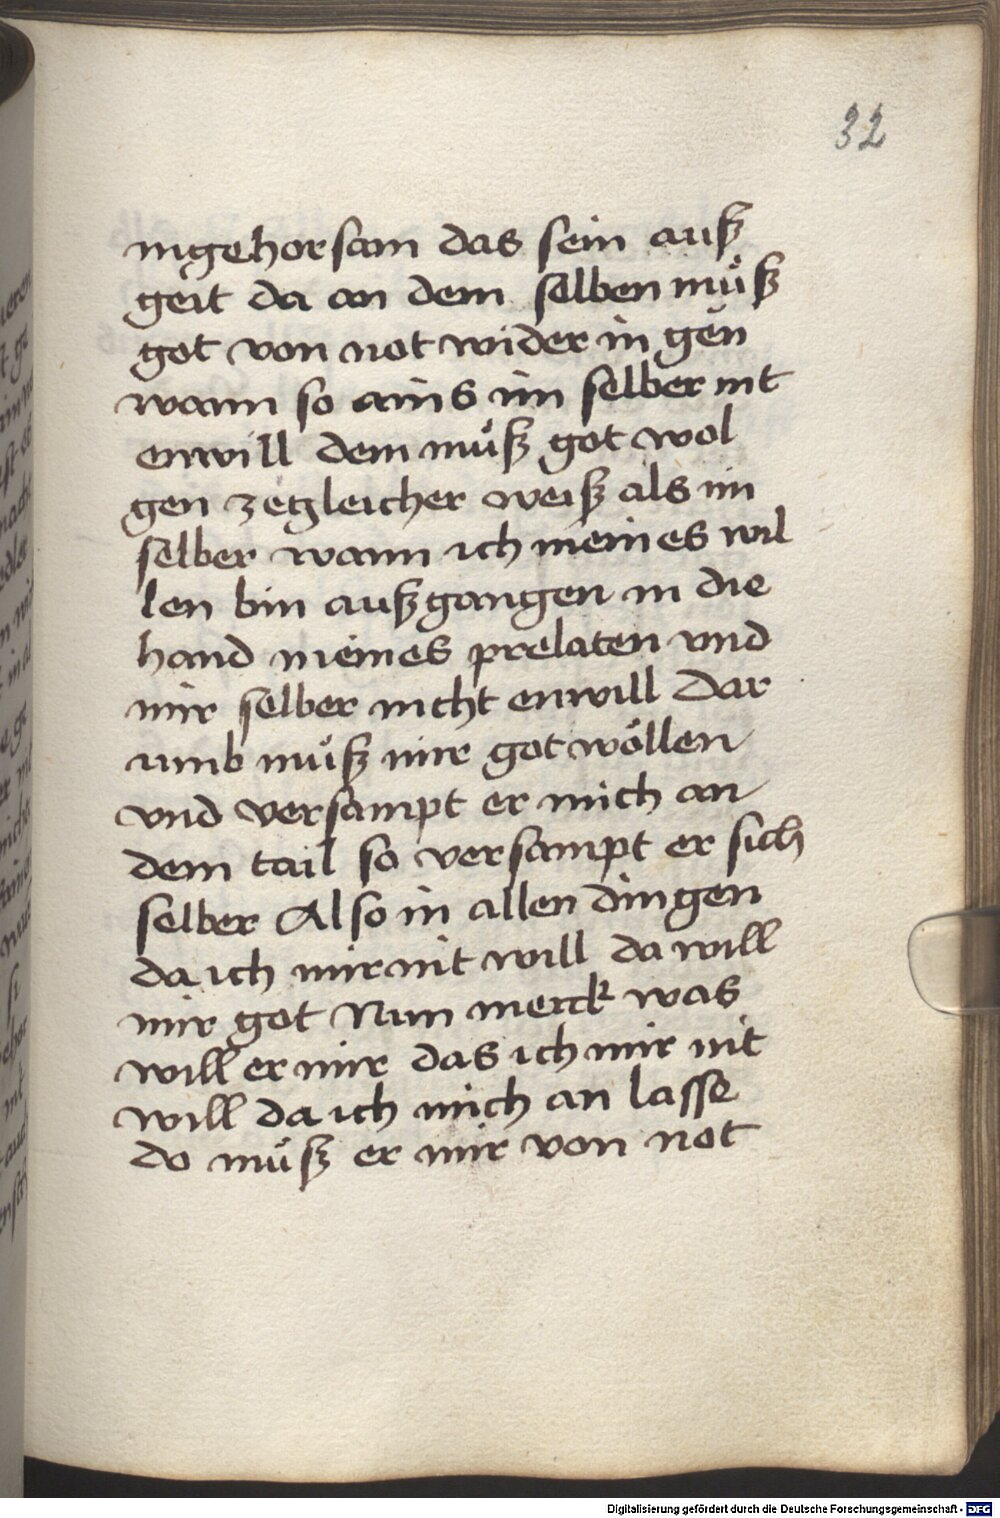 32
ingehorsam das sein auß
geit da an dem selben muͦß
got von not wider in gen
wann so ains im selber nit
enwill dem muͦß got wol
gen zegleicher weiß als im
selber wann ich meines wil
len bin außgangen in die
hand meines prelaten vnd
mir selber nicht enwill Dar
umb muͦß mir got wöllen
vnd versampt er mich an
dem tail so versampt er sich
selber Also in allen dingen
da ich mir nit will da will
mir got Nun merck was
will er mir das ich mir nit
will da ich mich an lasse
do muͦß er mir von not
Digitalisierung gefördert durch die Deutsche Forschungsgemeinschaft - DFG